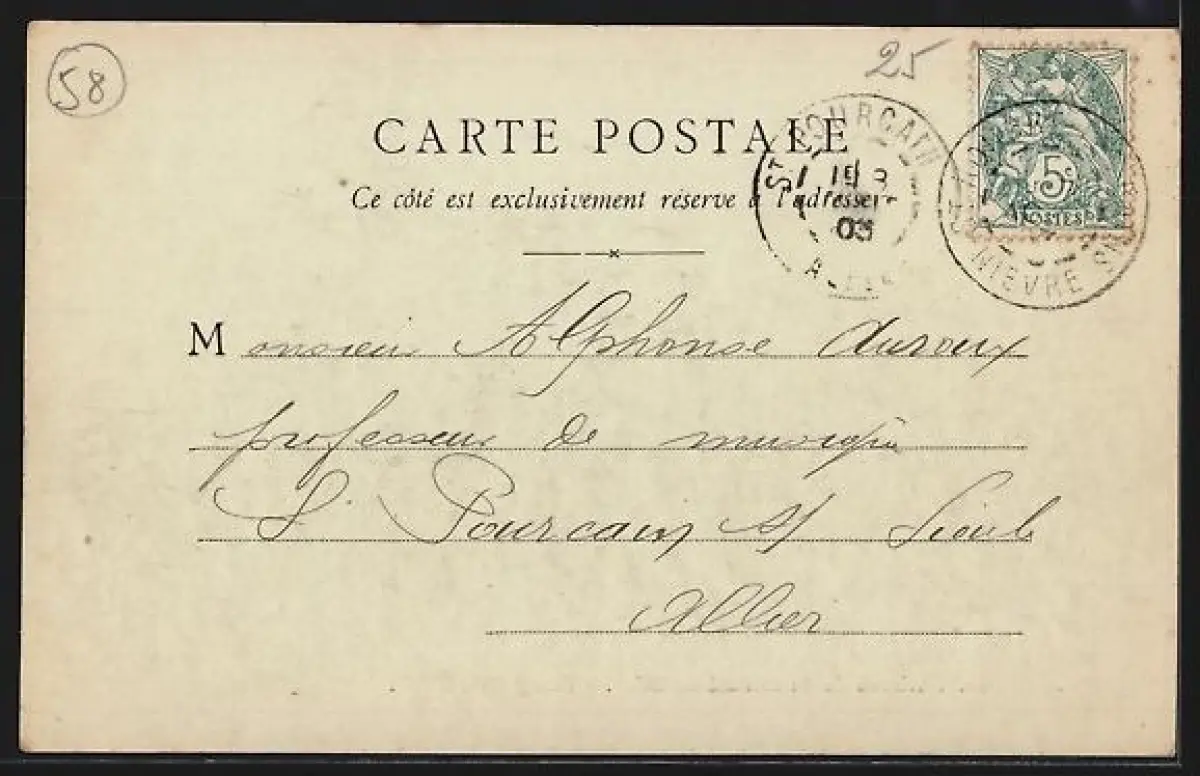 58
25
CARTE POSTALE
Ce côté est exclusivement réservé à l'adresse
ST POURCAIN
1E
03
5c
POSTES
NIEVRE
Monsieur Alphonse Auroux
professeur de musique
St Pourcain s/ Sioule
Allier